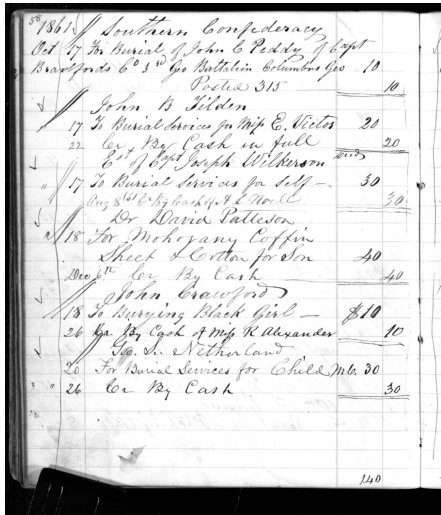 58
1861 Southern Confederacy
Oct 17 For Burial of John C Peddy of Capt
Bradfords Co 3rd Geo Battalion Columbus Geo 10
Posted 315 10
John B Tilden
17 To Burial Services for Miss E. Victor 20
22 Cr By Cash in full 20
Est of Capt Joseph Wilkerson
" 17 To Burial Services for Self — 30
Aug 8 Cr By Cash of A L Noell 30
Dr David Patteson
" 18 For Mohogany Coffin
Sheet & Cotton for Son 40
Dec 6th Cr By Cash 40
John Crawford
18 To Burying Black Girl — $10
26 Cr By Cash of Miss R Alexander 10
Netherland
20 For Burial Services for Child 30
" 26 Cr By Cash 30
140